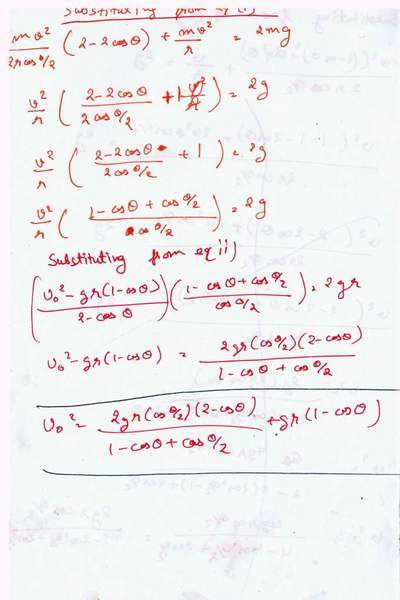 Substituting from eq (i)
mv²/2r cos θ/2 (2-2cosθ) + mv²/r = 2mg
v²/r ( 2-2cosθ / 2cosθ/2 + 1 ) = 2g
v²/r ( 2-2cosθ / 2cosθ/2 + 1 ) = 2g
v²/r ( 1-cosθ + cosθ/2 / cosθ/2 ) = 2g
Substituting from eq ii)
( v₀² - gr(1-cosθ) / 2-cosθ ) ( 1-cosθ + cosθ/2 / cosθ/2 ) = 2gr
v₀² - gr(1-cosθ) = 2gr(cosθ/2)(2-cosθ) / 1-cosθ + cosθ/2
v₀² = 2gr(cosθ/2)(2-cosθ) / 1-cosθ + cosθ/2 + gr(1-cosθ)